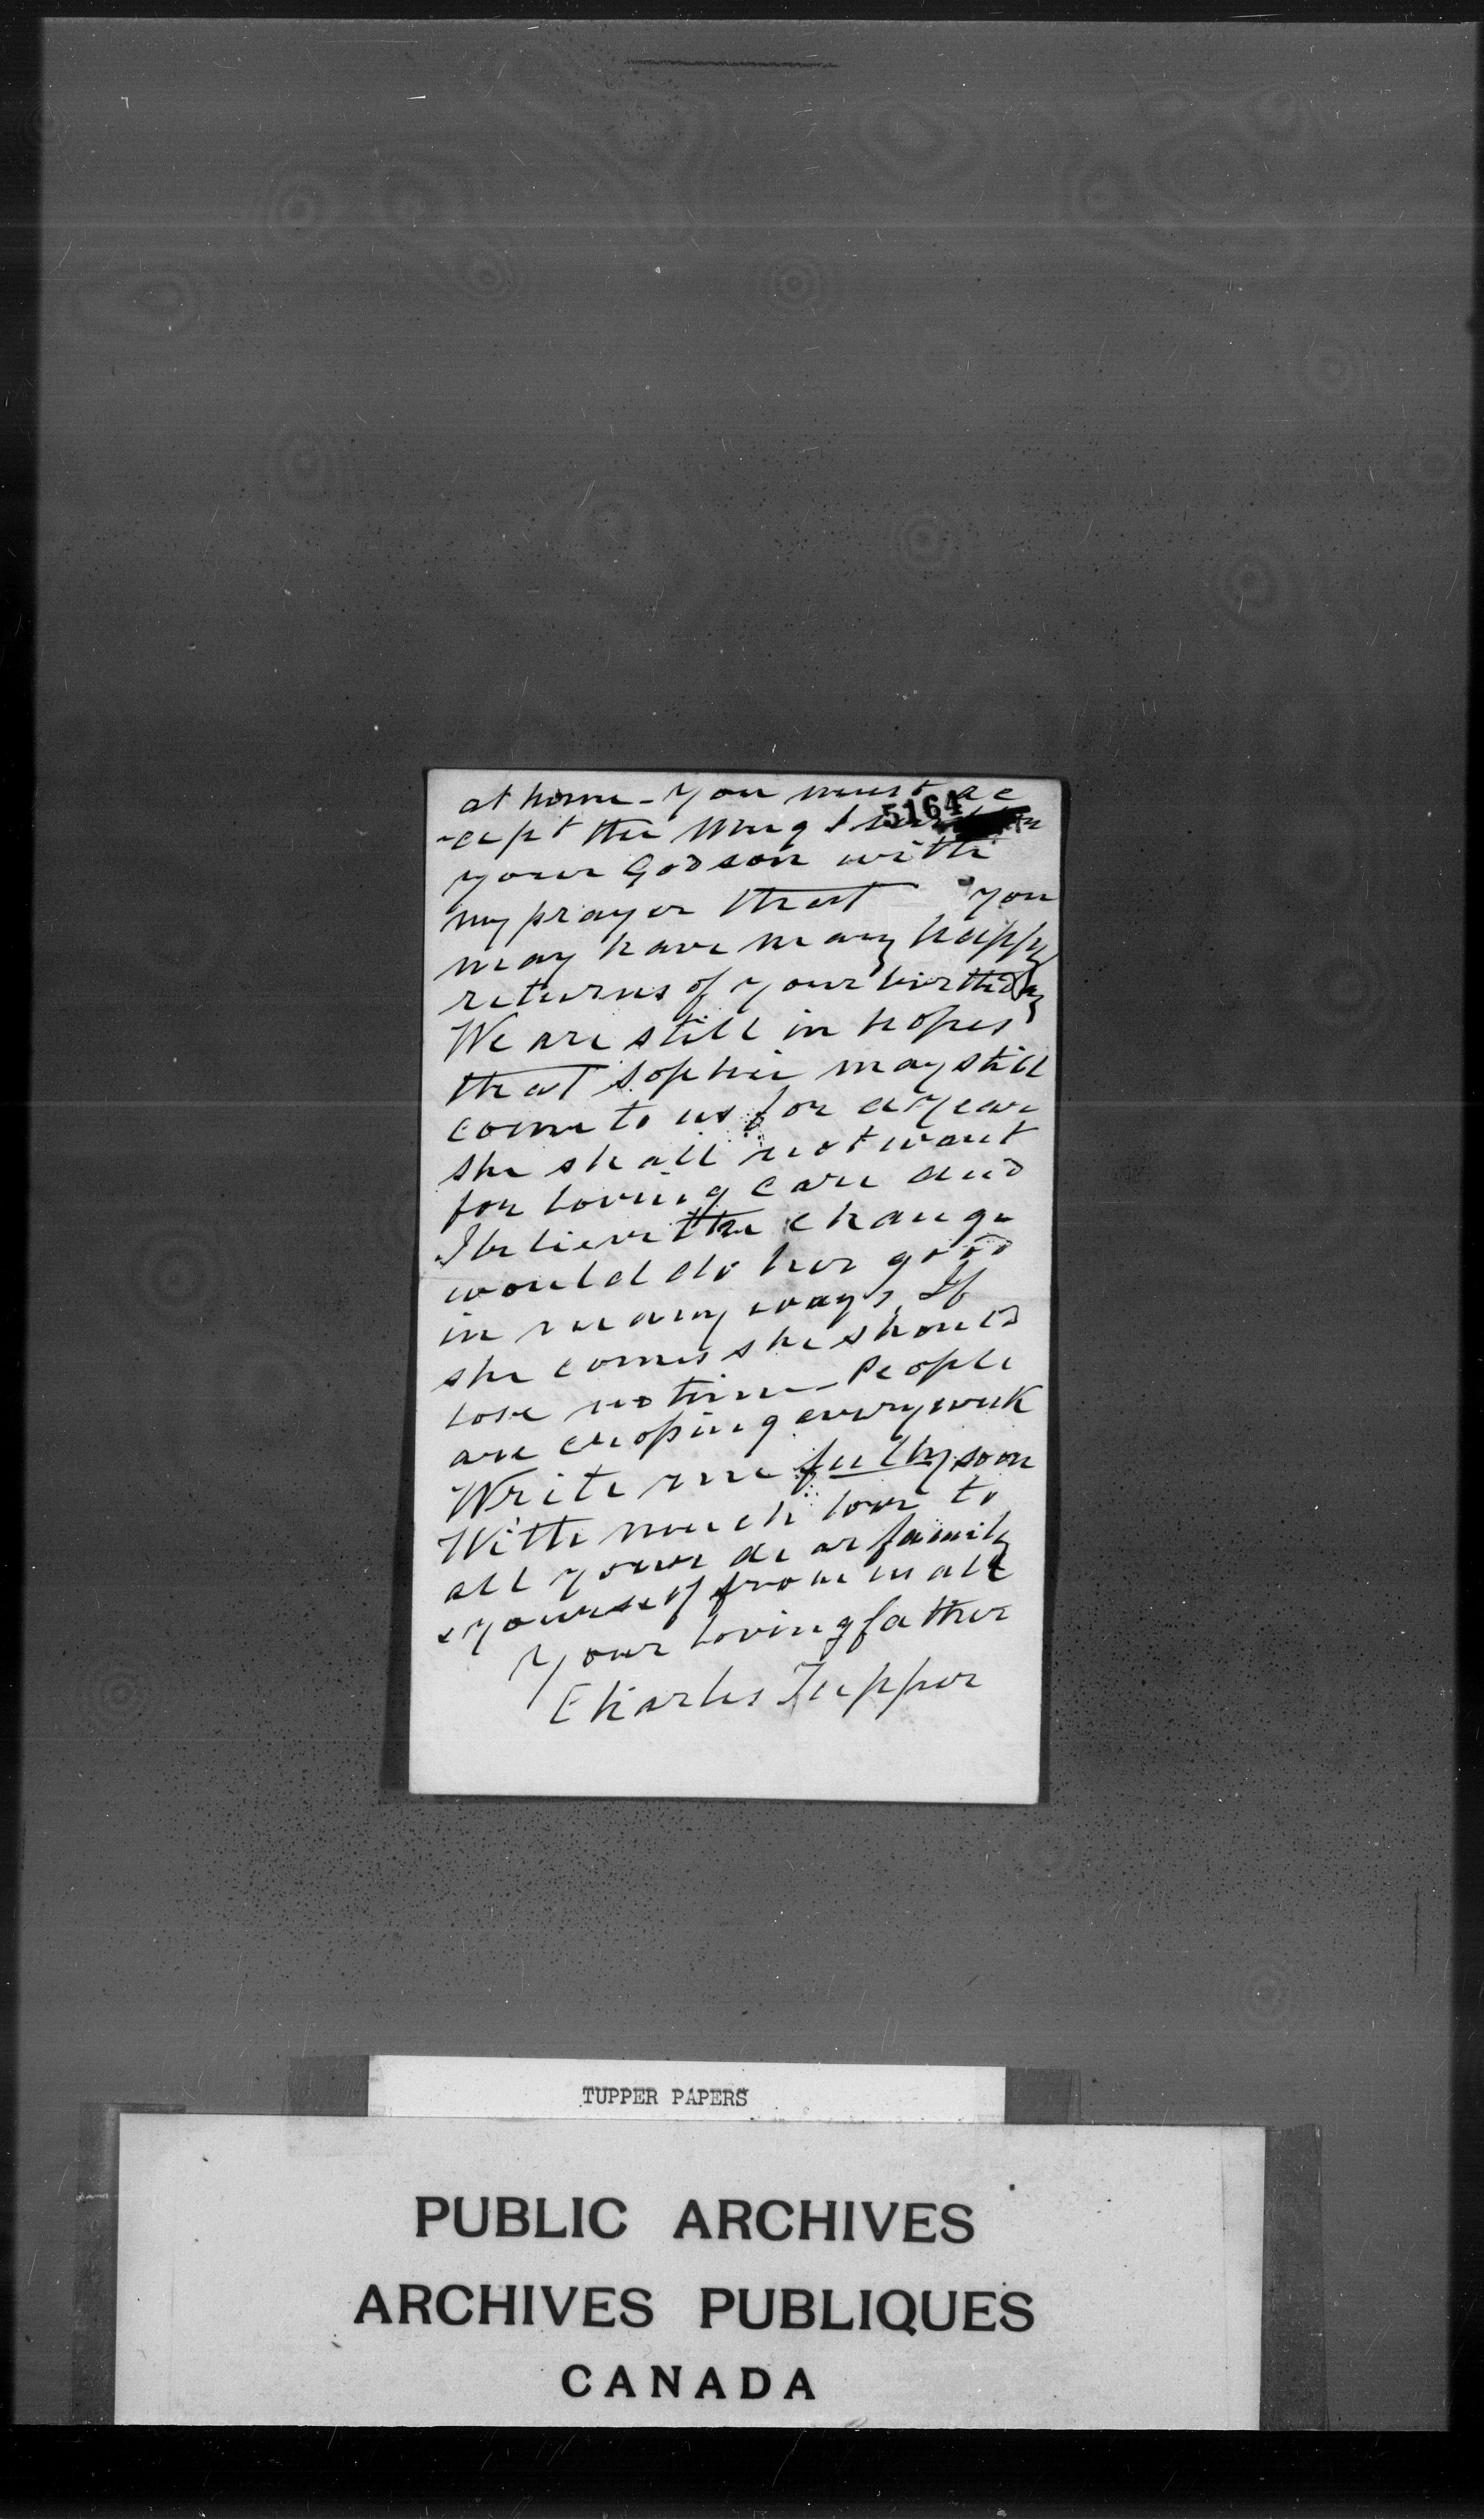 at home - you must ac
5164
-cept the mug I sent
your Godson with
my prayer that you
may have many happy
returns of your birthday
We are still in hopes
that Sophie may still
come to us for a year
she shall not want
for loving care and
I believe the change
would do her good
in many ways. If
she comes she should
lose no time - People
are every week
Write me fully soon
With much love to
all your dear family
& yourself from us all
Your loving father
Charles Tupper
TUPPER PAPERS
PUBLIC ARCHIVES
ARCHIVES PUBLIQUES
CANADA